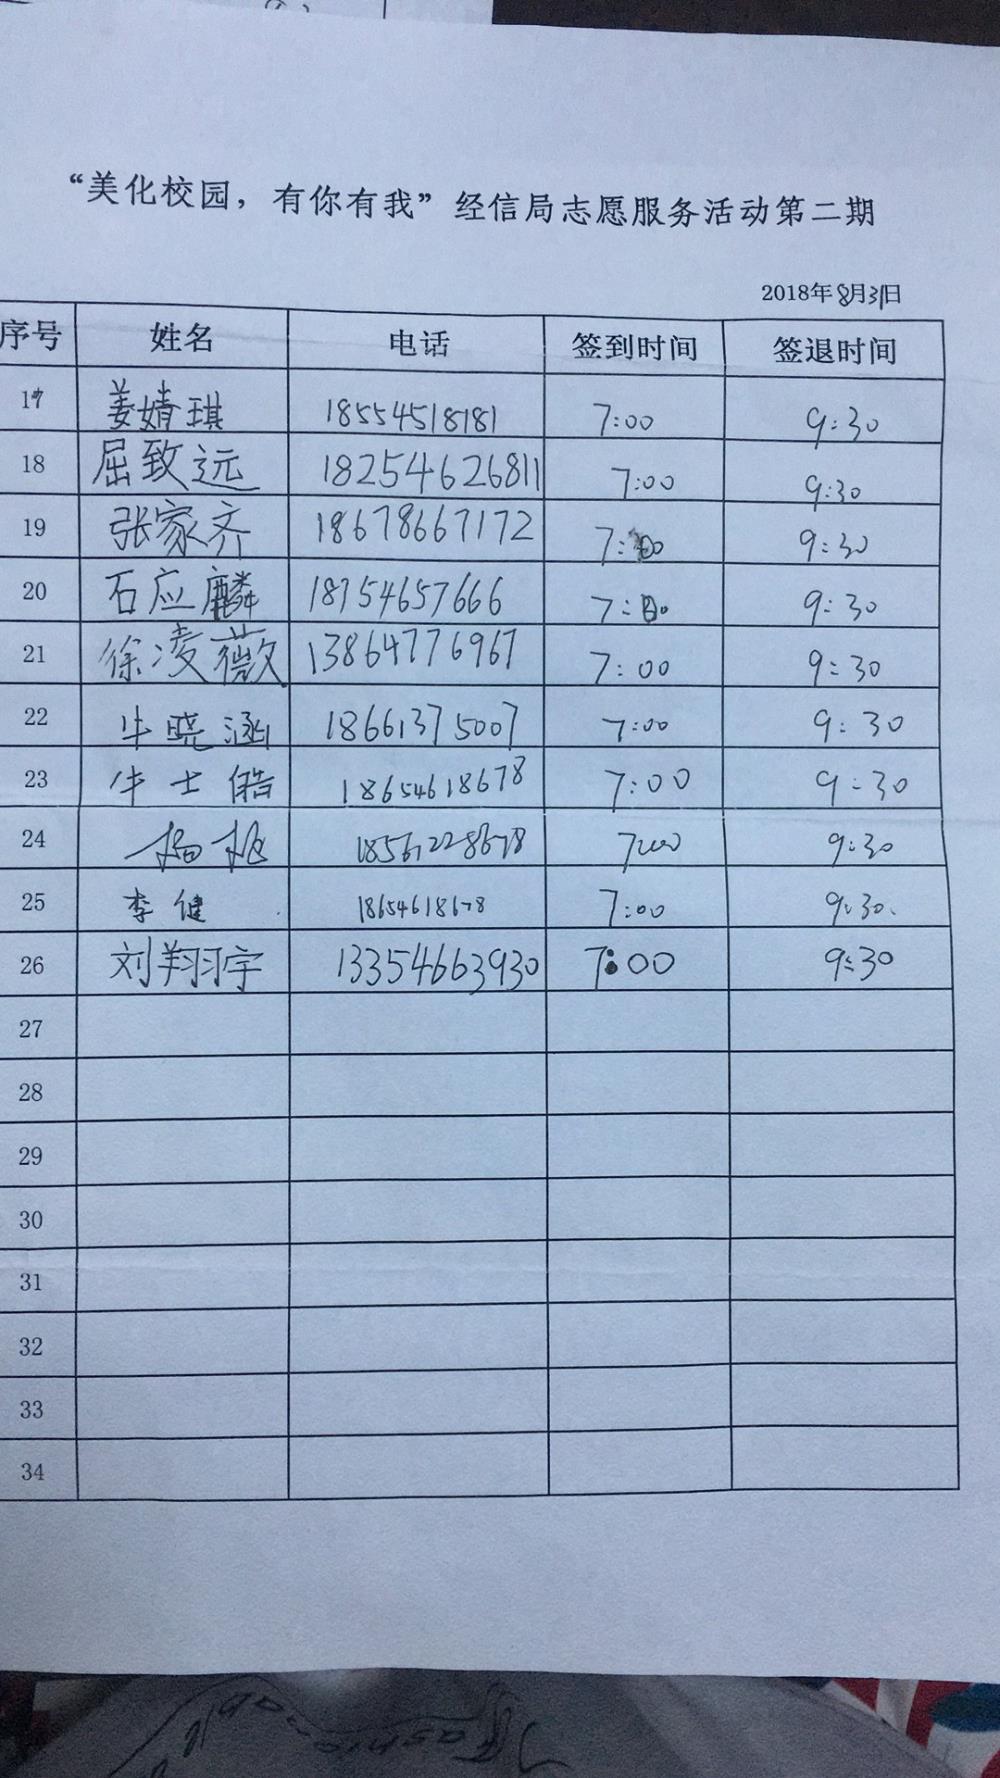 “美化校园，有你有我”经信局志愿服务活动第二期
2018年8月31日
序号 姓名 电话 签到时间 签退时间
17 姜婧琪 18554518181 7:00 9:30
18 屈致远 18254626811 7:00 9:30
19 张家齐 18678667172 7:00 9:30
20 石应麟 18754657666 7:00 9:30
21 徐凌薇 13864776967 7:00 9:30
22 牛晓涵 18661375007 7:00 9:30
23 牛士皓 18654618678 7:00 9:30
24 杨 7:00 9:30
25 李健 18654618678 7:00 9:30.
26 刘翔宇 13354663930 7:00 9:30
27
28
29
30
31
32
33
34